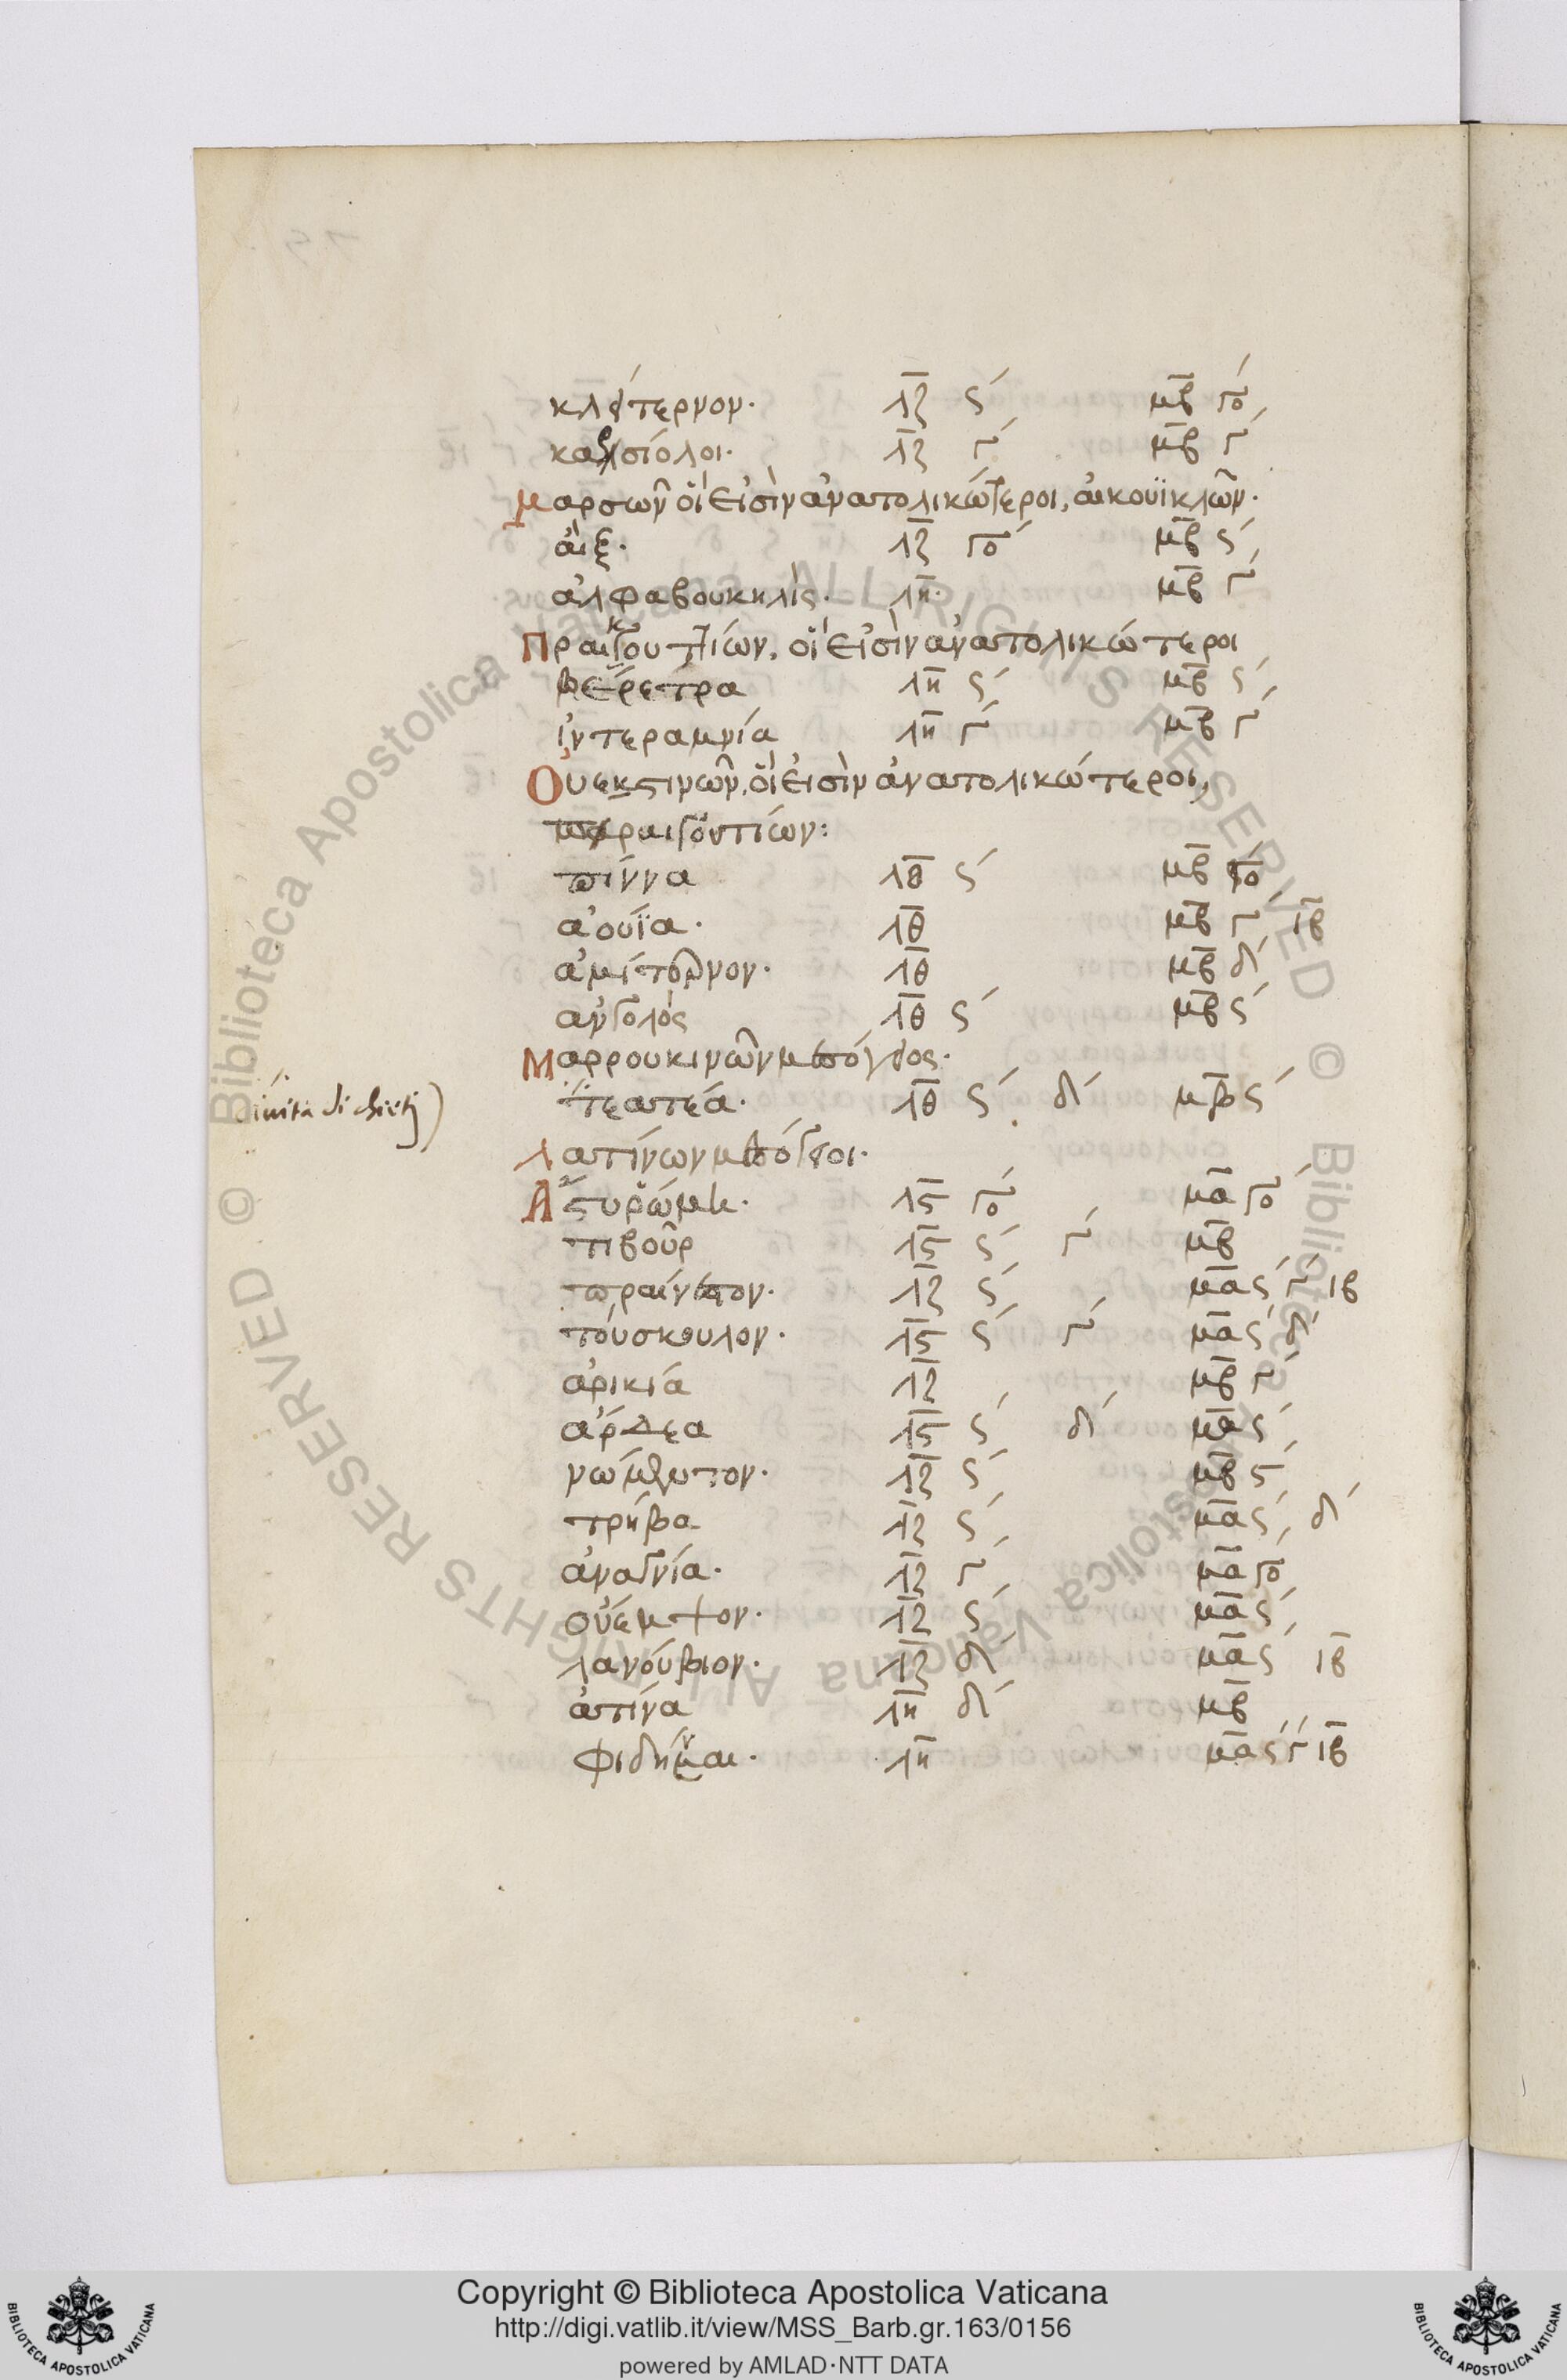 κλίτερνον. λζ ϛ´ μβ γο´
καρσίολοι. λζ γ´ μβ γ´
Μαρσῶν οἵ εἰσὶν ἀνατολικώτεροι, αἰκουϊκλῶν.
ἄιξ. λζ γο´ μβ ϛ´
ἀλφαβουκηλὶς. λη. μβ γ´
Πραικουτίων, οἵ εἰσὶν ἀνατολικώτεροι
βέρετρα λη ϛ´ μβ ϛ´
ἰντεραμνία λη γ´ μβ γ´
Οὐεκστινῶν, οἵ εἰσὶν ἀνατολικώτεροι,
πραιγουτίων:
πίννα λθ ϛ´ μβ γο´
ἀουΐα. λθ μβ γ´ ιβ
ἀμίτερνον. λθ μβ δ´
ἀνγολὸς λθ ϛ´ μβ ϛ´
Μαρρουκινῶν μεσόγειος.
τεατέα. λθ ϛ´ δ´ μβ ϛ´
civita di chieti)
Λατίνων μεσόγειοι.
λϛ γο´ μα γο´
τιβοῦρ λϛ ϛ´ γ´ μβ
πραίνεστον. λζ ϛ´ μα ϛ´ γ´ ιβ
τούσκουλον. λϛ ϛ´ γ´ μα ϛ´ δ´
ἀρικία λζ μβ γ´
ἄρδεα λϛ ϛ´ δ´ μα ϛ´
νώμεντον. λζ ϛ´ μβ ϛ
τρήβα λζ ϛ´ μα ϛ´ δ´
ἀναγνία. λζ γ´ μα γο´
λζ ϛ´ μα ϛ´
λανούβιον. λζ δ´ μα ϛ´ ιβ
ἀτίνα λη δ´ μβ
φιδήναι. λη μα ϛ´ γ´ ιβ
© Biblioteca Apostolica Vaticana ALL RIGHTS RESERVED © Biblioteca Apostolica Vaticana ALL RIGHTS RESERVED
Copyright © Biblioteca Apostolica Vaticana
http://digi.vatlib.it/view/MSS_Barb.gr.163/0156
powered by AMLAD·NTT DATA
BIBLIOTECA APOSTOLICA VATICANA
BIBLIOTECA APOSTOLICA VATICANA